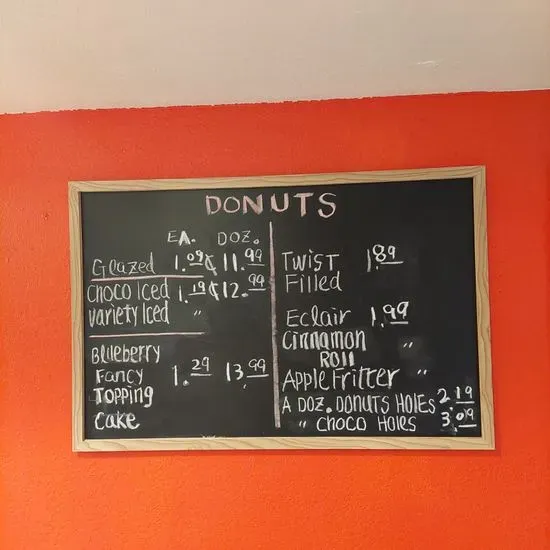 DONUTS
EA. DOZ.
Glazed 1.09¢ 11.99
Choco Iced 1.19¢ 12.99
Variety Iced "
Blueberry
Fancy 1.29 13.99
Topping
Cake
Twist 1.89
Filled
Eclair 1.99
Cinnamon "
Roll
Apple Fritter "
A DOZ. DONUTS HOLES 2.19
" CHOCO HOLES 3.09